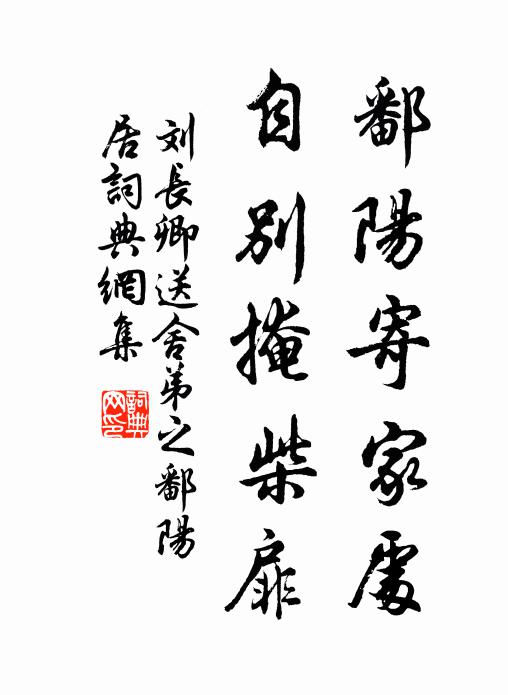 鄱陽寄家處
自別掩柴扉
刘長卿送舍弟之鄱陽
居詞典網集
詞典
网印